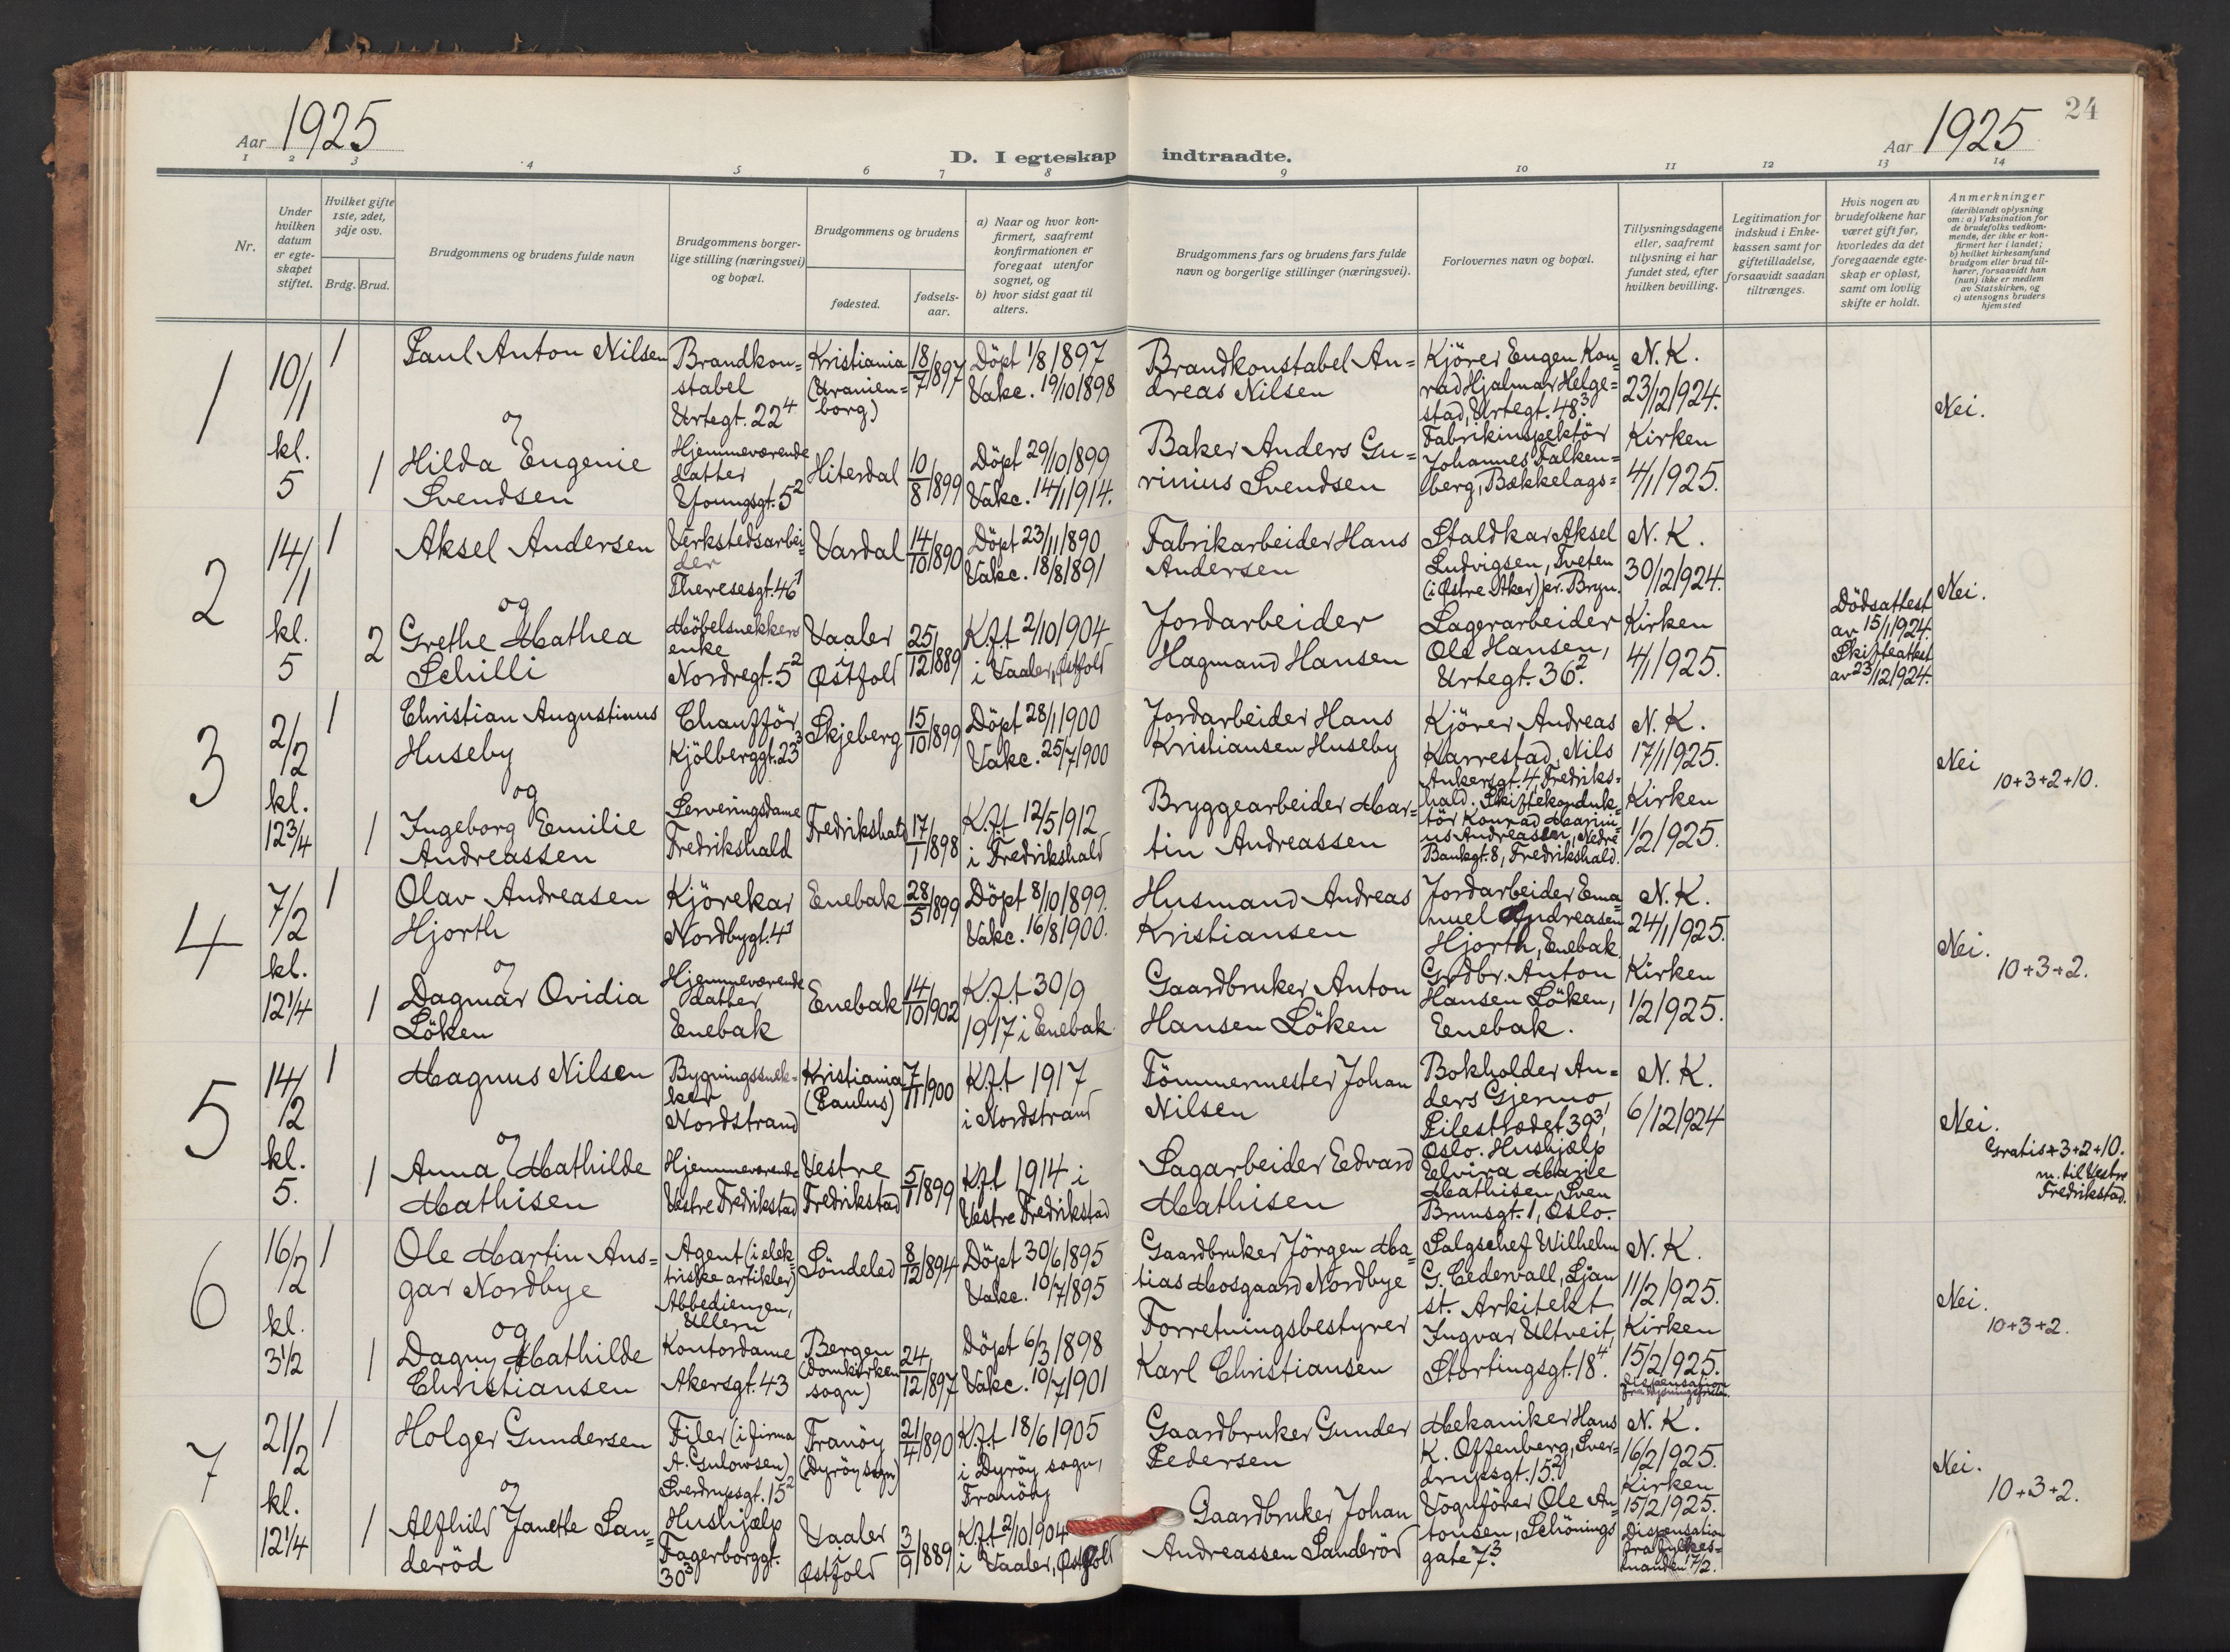 Aar 1925
D. I egteskap indtraadte.
Aar 1925
24
1 2 3 4 5 6 7 8 9 10 11 12 13 14
Nr.
Under
hvilken
datum
er egte-
skapet
stiftet.
Hvilket gifte
1ste, 2det,
3dje osv.
Brdg. Brud.
Brudgommens og brudens fulde navn
Brudgommens borger-
lige stilling (næringsvei)
og bopæl.
Brudgommens og brudens
fødested.
fødsels-
aar.
a) Naar og hvor kon-
firmert, saafremt
konfirmationen er
foregaat utenfor
sognet, og
b) hvor sidst gaat til
alters.
Brudgommens fars og brudens fars fulde
navn og borgerlige stillinger (næringsvei).
Forlovernes navn og bopæl.
Tillysningsdagene
eller, saafremt
tillysning ei har
fundet sted, efter
hvilken bevilling.
Legitimation for
indskud i Enke-
kassen samt for
giftetilladelse,
forsaavidt saadan
tiltrænges.
Hvis nogen av
brudefolkene har
været gift før,
hvorledes da det
foregaaende egte-
skap er opløst,
samt om lovlig
skifte er holdt.
Anmerkninger
(deriblandt oplysning
om: a) Vaksination for
de brudefolks vedkom-
mende, der ikke er kon-
firmert her i landet;
b) hvilket kirkesamfund
brudgom eller brud til-
hører, forsaavidt han
(hun) ikke er medlem
av Statskirken, og
c) utensogns bruders
hjemsted
1
10/1
kl.
5
1
Paul Anton Nilsen
Brandkon=
stabel
Urtegt. 22⁴
Kristiania
(Uranien=
borg)
18/7/897
Döpt 1/8 1897
Vakc. 19/10 1898
Brandkonstabel An=
dreas Nilsen
Kjörer Eugen Kon
rad Hjalmar Helge=
stad, Urtegt. 48³.
N. K.
23/12 1924.
Nei.
og
1
Hilda Eugenie
Svendsen
Hjemmeværende
datter
Youngsgt. 5²
Hiterdal
10/8/899
Döpt 29/10 1899
Vakc. 14/1 1914.
Baker Anders Gu=
rinius Svendsen
Fabrikinspektör
Johannes Falken=
berg, Bækkelags=
Kirken
4/1 1925.
2
14/1
kl.
5
1
Aksel Andersen
Verkstedsarbei=
der
Theresesgt. 46¹
Vardal
14/10/890
Döpt 23/11 1890
Vakc. 18/8 1891
Fabrikarbeider Hans
Andersen
Staldkar Aksel
Ludvigsen, Tveten
(i Østre Aker) pr. Bryn.
N. K.
30/12 1924.
Nei.
og
2
Grethe Mathea
Schilli
Möbelsnekkers
enke
Nordregt. 5²
Vaaler
i
Østfold
25/12/889
K.f.t 2/10 1904
i Vaaler, Østfold
Jordarbeider
Hagmand Hansen
Lagerarbeider
Ole Hansen,
Urtegt. 36².
Kirken
4/1 1925.
Dödsattest
av 15/1 1924.
Skifteattest
av 23/12 1924.
3
2/2
kl.
12¾
1
Christian Augustinus
Huseby
Chaufför
Kjölberggt. 23³
Skjeberg
15/10/899
Döpt 28/1 1900
Vakc. 25/7 1900
Jordarbeider Hans
Kristiansen Huseby
Kjörer Andreas
Karrestad, Nils
Ankersgt. 4, Fredriks=
hald. Skiftekonduk=
tör Konrad Marini=
us Andreassen, Nedre
Bankgt. 8, Fredrikshald.
N. K.
17/1 1925.
Kirken
1/2 1925.
Nei
10+3+2+10.
og
1
Ingeborg Emilie
Andreassen
Serveringsdame
Fredrikshald
Fredrikshald
17/1/898
K.f.t 12/5 1912
i Fredrikshald
Bryggearbeider Mar=
tin Andreassen
4
7/2
kl.
12¼
1
Olav Andreasen
Hjorth
Kjörekar
Nordbygt. 4¹
Enebak
28/5/899
Döpt 8/10 1899.
Vakc. 16/8 1900.
Husmand Andreas
Kristiansen
Jordarbeider Ema
nuel Andreasen
Hjorth, Enebak
N. K.
24/1 1925.
Nei.
10+3+2.
og
1
Dagmar Ovidia
Löken
Hjemmeværende
datter
Enebak
Enebak
14/10/902
K.f.t 30/9
1917 i Enebak
Gaardbruker Anton
Hansen Löken
Grdbr. Anton
Hansen Löken,
Enebak.
Kirken
1/2 1925.
5
14/2
kl.
5.
1
Magnus Nilsen
Bygningssnek-
ker
Nordstrand
Kristiania
(Paulus)
7/11/900
K.f.t 1917
i Nordstrand
Tömmermester Johan
Nilsen
Bokholder An=
ders Gjermo,
Pilestrædet 39³,
Oslo. Hushjælp
Elvira Marie
Mathisen, Sven
Brunsgt. 1, Oslo.
N. K.
6/12 1924
Nei.
Gratis+3+2+10.
m. til Vestre
Fredrikstad.
og
1
Anna Mathilde
Mathisen
Hjemmeværende
Vestre Fredrikstad
Vestre
Fredrikstad
5/1/899
K.f.t 1914 i
Vestre Fredrikstad
Sagarbeider Edvard
Mathisen
6
16/2
kl.
3½
1
Ole Martin Ans=
gar Nordbye
Agent (i elek
triske artikler)
Abbediengen,
Ullern
Söndeled
8/12/894
Döpt 30/6 1895
Vakc. 10/7 1895
Gaardbruker Jörgen Ma=
tias Mosgaard Nordbye
Salgschef Wilhelm
G. Cedervall, Ljan
st. Arkitekt
Ingvar Ultveit,
Stortingsgt. 18⁴.
N. K.
11/2 1925.
Kirken
15/2 1925.
Nei.
10+3+2.
og
1
Dagny Mathilde
Christiansen
Kontordame
Akersgt. 43
Bergen
(Domkirken
sogn)
24/12/897
Döpt 6/3 1898
Vakc. 10/7 1901
Forretningsbestyrer
Karl Christiansen
7
21/2
kl.
12¼
1
Holger Gundersen
Filer (i firma
A. Gulowsen)
Sverdrupsgt. 15²
Tranöy
(Dyröy sogn)
21/4/890
K.f.t 18/6 1905
i Dyröy sogn,
Tranöy
Gaardbruker Gunder
Pedersen
Mekaniker Hans
K. Offenberg, Sver=
drupsgt. 15².
N. K.
16/2 1925.
Kirken
15/2 1925.
Dispensation
fra fylkes=
manden 17/2.
Nei.
10+3+2.
og
1
Alfhild Janette San=
deröd
Hushjælp
Fagerborggt.
30³
Vaaler
i
Østfold
3/9/889
K.f.t 2/10 1904
i Vaaler, Østfold
Gaardbruker Johan
Andreassen Sanderöd
Vognförer Ole An
tonsen, Schönings
gate 7³.